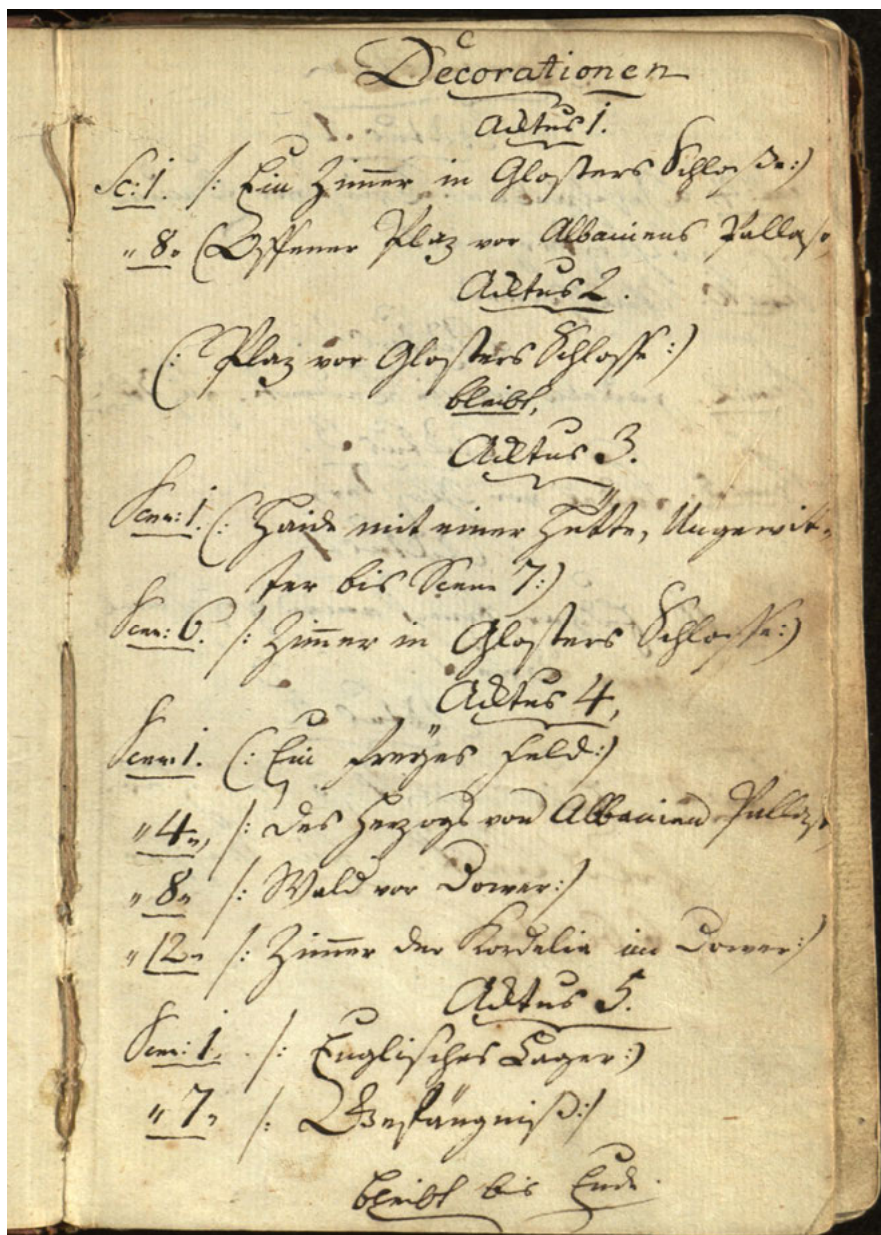 Decorationen
Actus 1.
Sc: 1. /: Ein Zimmer in Glosters Schloße:)
" 8. (Offener Plaz vor Albaniens Pallast,
Actus 2.
(: Plaz vor Glosters Schlosse:)
bleibt,
Actus 3.
Scen: 1. (: Haide mit einer Hütte, Ungewit-
ter bis Scene 7:)
Scen: 6. /: Zimer in Glosters Schlosse:)
Actus 4,
Scen: 1. (: Ein freyes Feld:)
" 4 ", /: des Herzogs von Albanien Pallast,
" 8 " /: Wald vor Dower:/
" 12 " /: Zimer der Kordelia in Dower:/
Actus 5.
Scen: 1. /: Englisches Lager:)
" 7, /: Gefängniß:/
bleibt bis Ende.